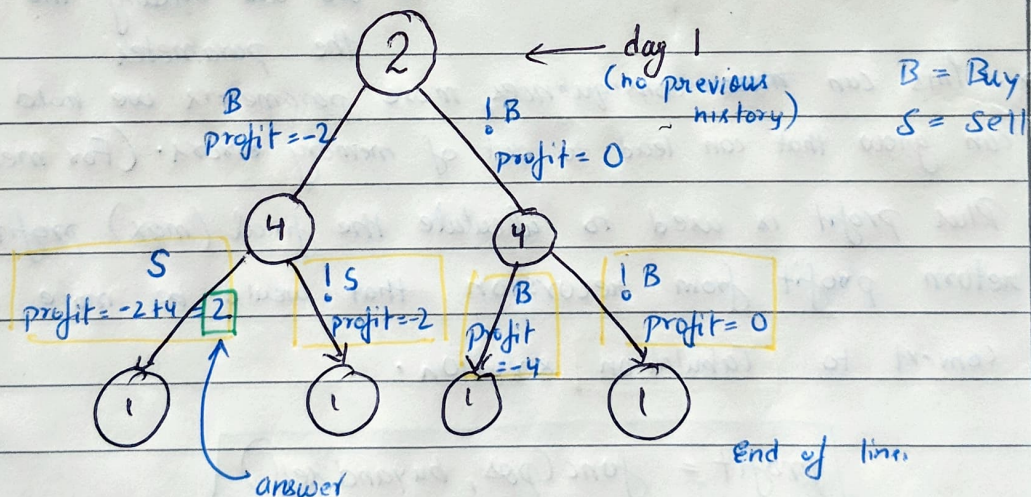 2
← day 1
(no previous
history)
B = Buy
S = Sell
B
profit = -2
! B
profit = 0
4
4
S
profit = -2+4 = 2
! S
profit = -2
B
Profit
= -4
! B
profit = 0
1
1
1
1
End of line.
answer